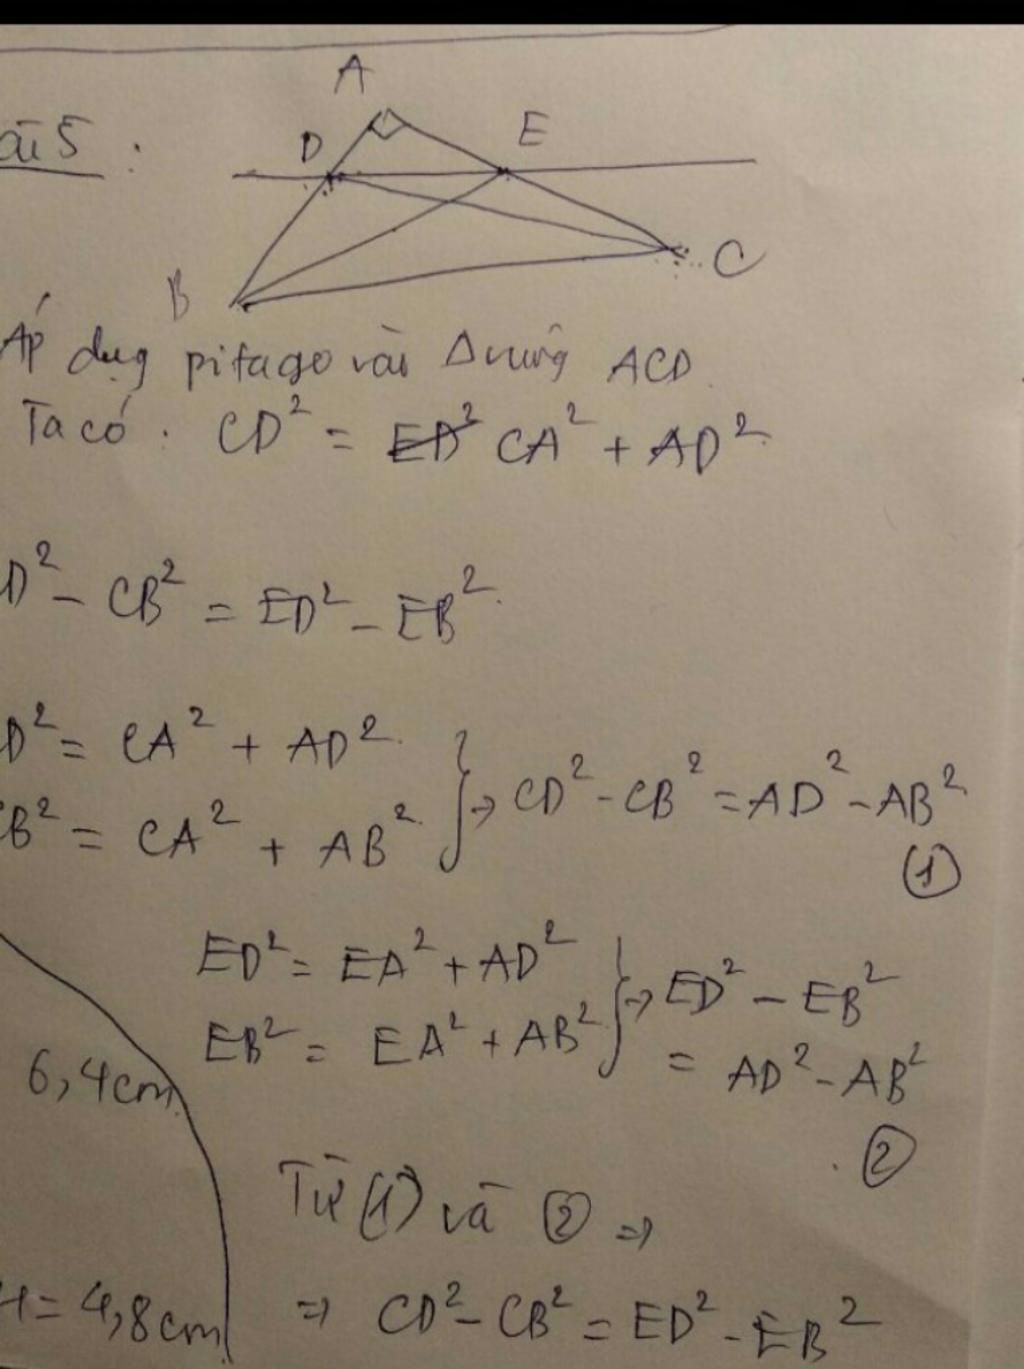 A
ài 5 :
D E
C
B
Áp dụg pitago vài Δ vuông ACD.
Ta có : CD² = ED² CA² + AD²
D² - CB² = ED² - EB²
D² = CA² + AD²
CB² = CA² + AB² } → CD² - CB² = AD² - AB²
(1)
ED² = EA² + AD²
EB² = EA² + AB² } → ED² - EB²
= AD² - AB²
(2)
6,4cm
Từ (1) và (2) ⇒
H = 4,8cm
⇒ CD² - CB² = ED² - EB²